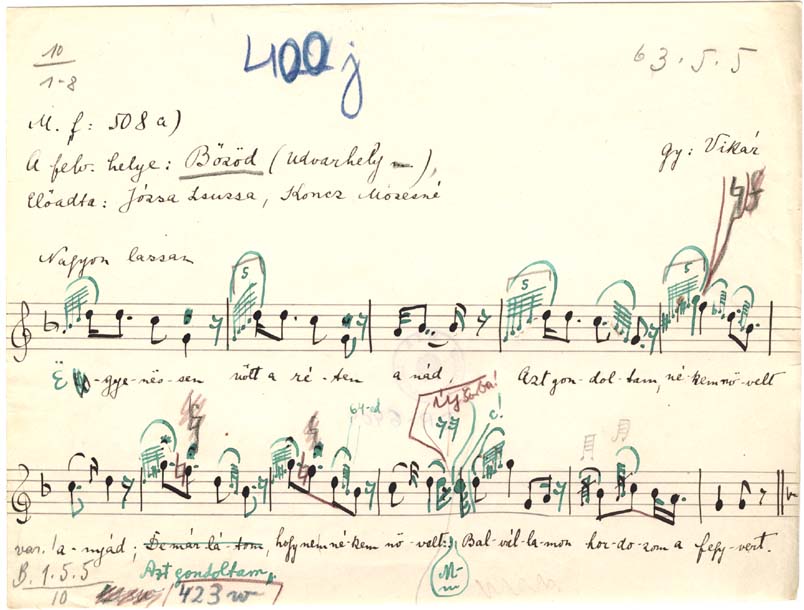 10
1-8
400j
63.5.5
M. f: 508 a)
A felv. helye: Bözöd (Udvarhely —),
gy: Vikár
Előadta: Józsa Zsuzsa, Koncz Mózesné
Nagyon lassan
5 5 5
Ë-gye-nës-sen nőtt a ré-ten a nád, Azt gon-dol-tam, né-kem nö-velt
64-ed új sorba! c!
var. 'a-nyád; De már lá-tom, hogy nem né-kem nö-velt: Bal-vál-la-mon hor-do-zom a fegy-vert.
B. 1.5.5
10
Azt gondoltam,
423 w